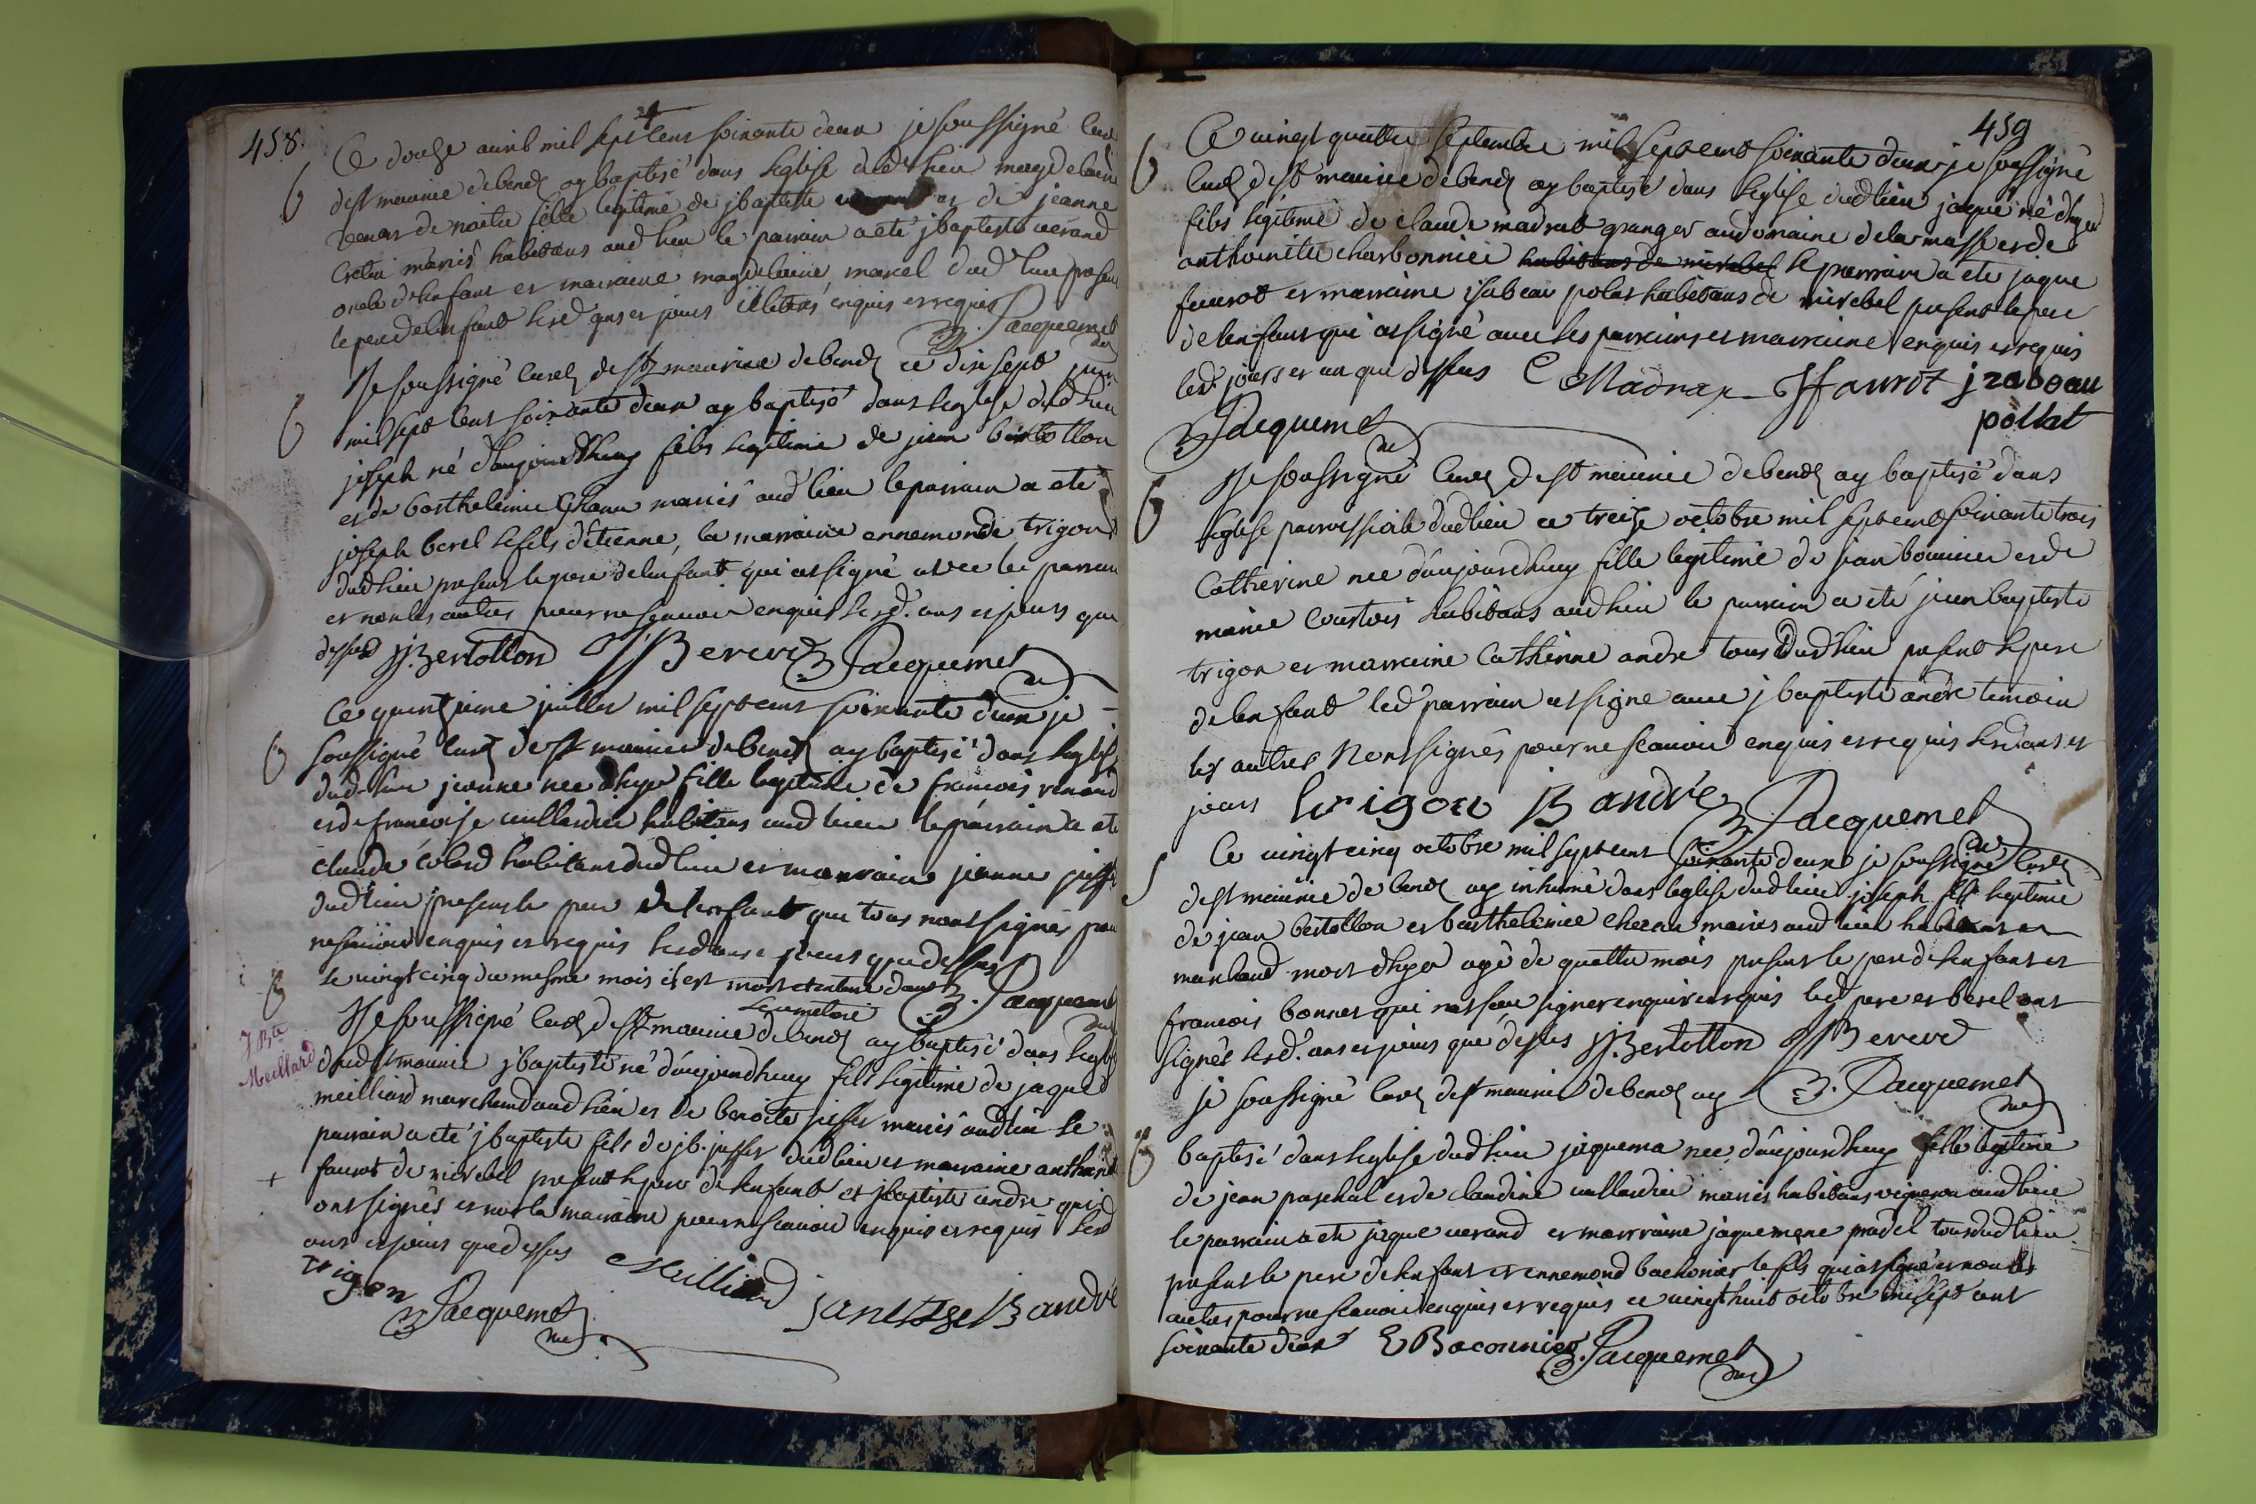 458.
Ce douze avril mil sept cent soixante deux je soussigné curé
de st maurice debend ay baptisé dans leglise dudt lieu magdelaine
fille legitime de jbaptiste et de jeanne
mariés habitans aud lieu le parrain a eté jbaptiste verand
oncle delenfant et marraine magdelaine marcel dud lieu present
le pere de lenfant lesd ans et jours illiterés enquis et requis
B. Jacquemet
Je soussigné curé de st maurice debend ce dix sept juin
mil sept cent soixante deux ay baptisé dans leglise dud lieu
joseph né d'aujourdhuy fils legitime de jean bertollon
et de barthelemie mariés aud lieu le parrain a eté
joseph berel le fils d'etienne, la marraine ennemonde trigon
dud lieu present le pere de lenfant qui a signé avec le parrain
et non les autres pour ne scavoir enquis lesd. ans et jours que
dessus JJ. Bertollon JJ Berere B Jacquemet
Ce quinzieme juillet mil sept cent soixante deux je
soussigné curé de st maurice debend ay baptisé dans leglise
dud lieu jeanne née dhyer fille legitime de francois
et de francoise cuillardier habitans aud lieu le parrain a eté
claude colard habitans dud lieu et marraine jeanne
dud lieu present le pere de lenfant qui tous nont signés pour
ne scavoir enquis et requis lesd ans et jours que dessus
le vingt cinq du mesme mois il est mort et enterré dans
le cimetiere B. Jacquemet
J Bte
Meillard
Je soussigné curé de st maurice debend ay baptisé dans leglise
dud st maurice jbaptiste né d'aujourdhuy fils legitime de jaque
meilliard marchand aud lieu et de benoite jusser mariés aud lieu le
parrain a eté jbaptiste fils de jb. jusser dud lieu et marraine
faurot de mirebel present le pere de lenfant et jbaptiste andre qui
ont signés et non la marraine pour ne scavoir enquis et requis lesd
ans et jours que dessus Meilliard
trigon B Jacquemet JB andré
459
Ce vingt quattre septembre mil sept cent soixante deux je soussigné
curé de st maurice debend ay baptisé dans leglise dud lieu jaque né dhyer
fils legitime de claude madrat granger au domaine de la masse et de
anthoinette charbonnier habitans de mirebel le parrain a eté jaque
faurot et marraine isabeau polat habitans de mirebel present le pere
de lenfant qui a signé avec les parrains et marraine enquis et requis
lesd. jours et an que dessus C Madrat J faurot jzabeau
pollat
B Jacquemet
Je soussigné curé de st maurice debend ay baptisé dans
leglise parroissiale dud lieu ce treize octobre mil sept cent soixante trois
Catherine née d'aujourdhuy fille legitime de jean bouvier et de
marie courtois habitans aud lieu le parrain a eté jean baptiste
trigon et marraine Catherine andre tous dud lieu present le pere
de lenfant led parrain a signé avec jbaptiste andre temoin
les autres nont signés pour ne scavoir enquis et requis lesd ans et
jours trigon JB andré B Jacquemet
Ce vingt cinq octobre mil sept cent soixante deux je soussigné curé
de st maurice de bend ay inhumé dans leglise dud lieu joseph fils legitime
de jean bertollon et barthelemie mariés aud lieu habitans et
marchand mort dhyer agé de quattre mois present le pere de lenfant et
francois bonnet qui na sceu signer enquis et requis led pere et berel ont
signés lesd. ans et jours que dessus JJ. Bertollon JJ Berere
je soussigné curé de st maurice debend ay B. Jacquemet
baptisé dans leglise dud lieu jaquema née d'aujourdhuy fille legitime
de jean paschal et de claudine cuillardier mariés habitans vigneron aud lieu
le parrain a eté jaque verand et marraine jaquemene pradel tous dud lieu
present le pere de lenfant et ennemond baconier le fils qui a signé et non les
autres pour ne scavoir enquis et requis ce vingt huit octobre mil sept cent
soixante deux E Baconnier B. Jacquemet